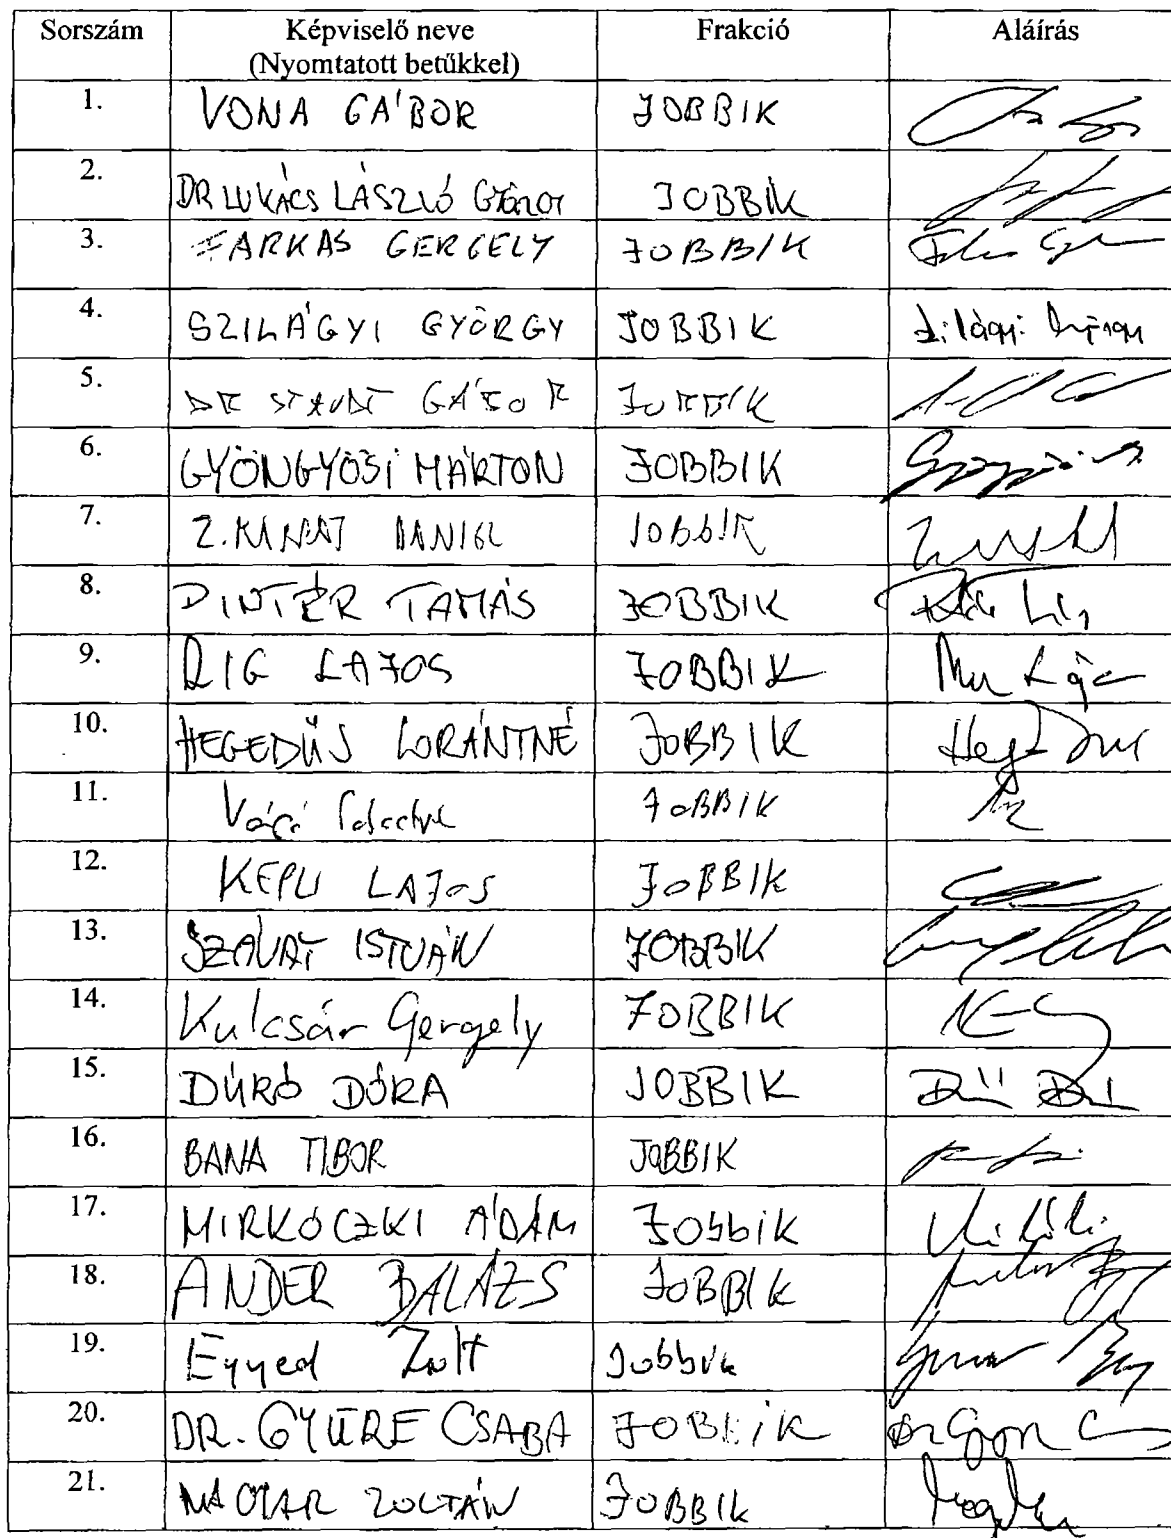 Sorszám Képviselő neve Frakció Aláírás
(Nyomtatott betűkkel)
1. VONA GÁBOR JOBBIK
2. DR LUKÁCS LÁSZLÓ GYÖRGY JOBBIK
3. FARKAS GERGELY JOBBIK
4. SZILÁGYI GYÖRGY JOBBIK Szilágyi György
5. DR STAUDT GÁBOR JOBBIK
6. GYÖNGYÖSI MÁRTON JOBBIK
7. Z. KÁRPÁT DÁNIEL JOBBIK
8. PINTÉR TAMÁS JOBBIK
9. RIG LAJOS JOBBIK
10. HEGEDŰS LORÁNTNÉ JOBBIK
11. JOBBIK
12. KEPLI LAJOS JOBBIK
13. SZÁVAY ISTVÁN JOBBIK
14. Kulcsár Gergely JOBBIK
15. DÚRÓ DÓRA JOBBIK
16. BANA TIBOR JOBBIK
17. MIRKÓCZKI ÁDÁM JOBBIK
18. ANDER BALÁZS JOBBIK
19. Egyed Zsolt Jobbik
20. DR. GYÜRE CSABA JOBBIK
21. MAGYAR ZOLTÁN JOBBIK